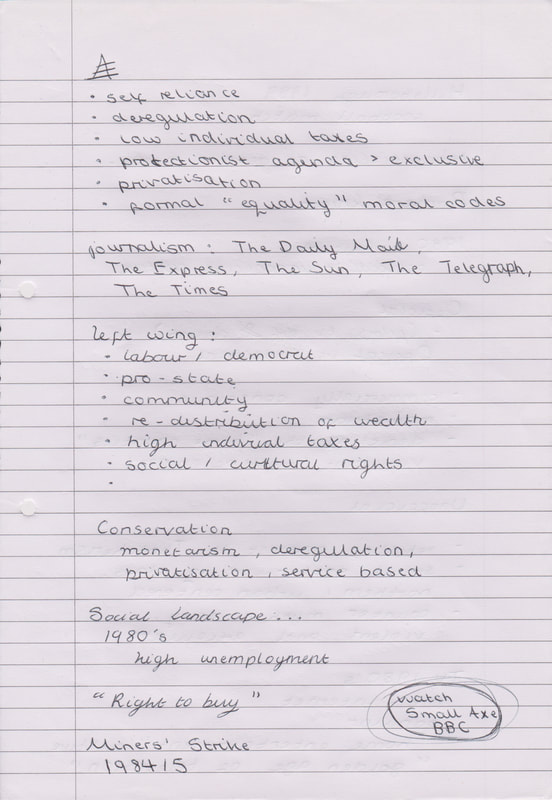 • self reliance
• deregulation
• low individual taxes
• protectionist agenda > exclusive
• privatisation
• formal "equality" moral codes
journalism : The Daily Mail,
The Express, The Sun, The Telegraph,
The Times
left wing :
• labour / democrat
• pro-state
• community
• re-distribution of wealth
• high indivial taxes
• social / curltural rights
•
Conservation
monetarism, deregulation,
privatisation, service based
Social landscape...
1980's
high unemployment
"Right to buy"
Watch
Small Axe
BBC
Miners' Strike
1984/5